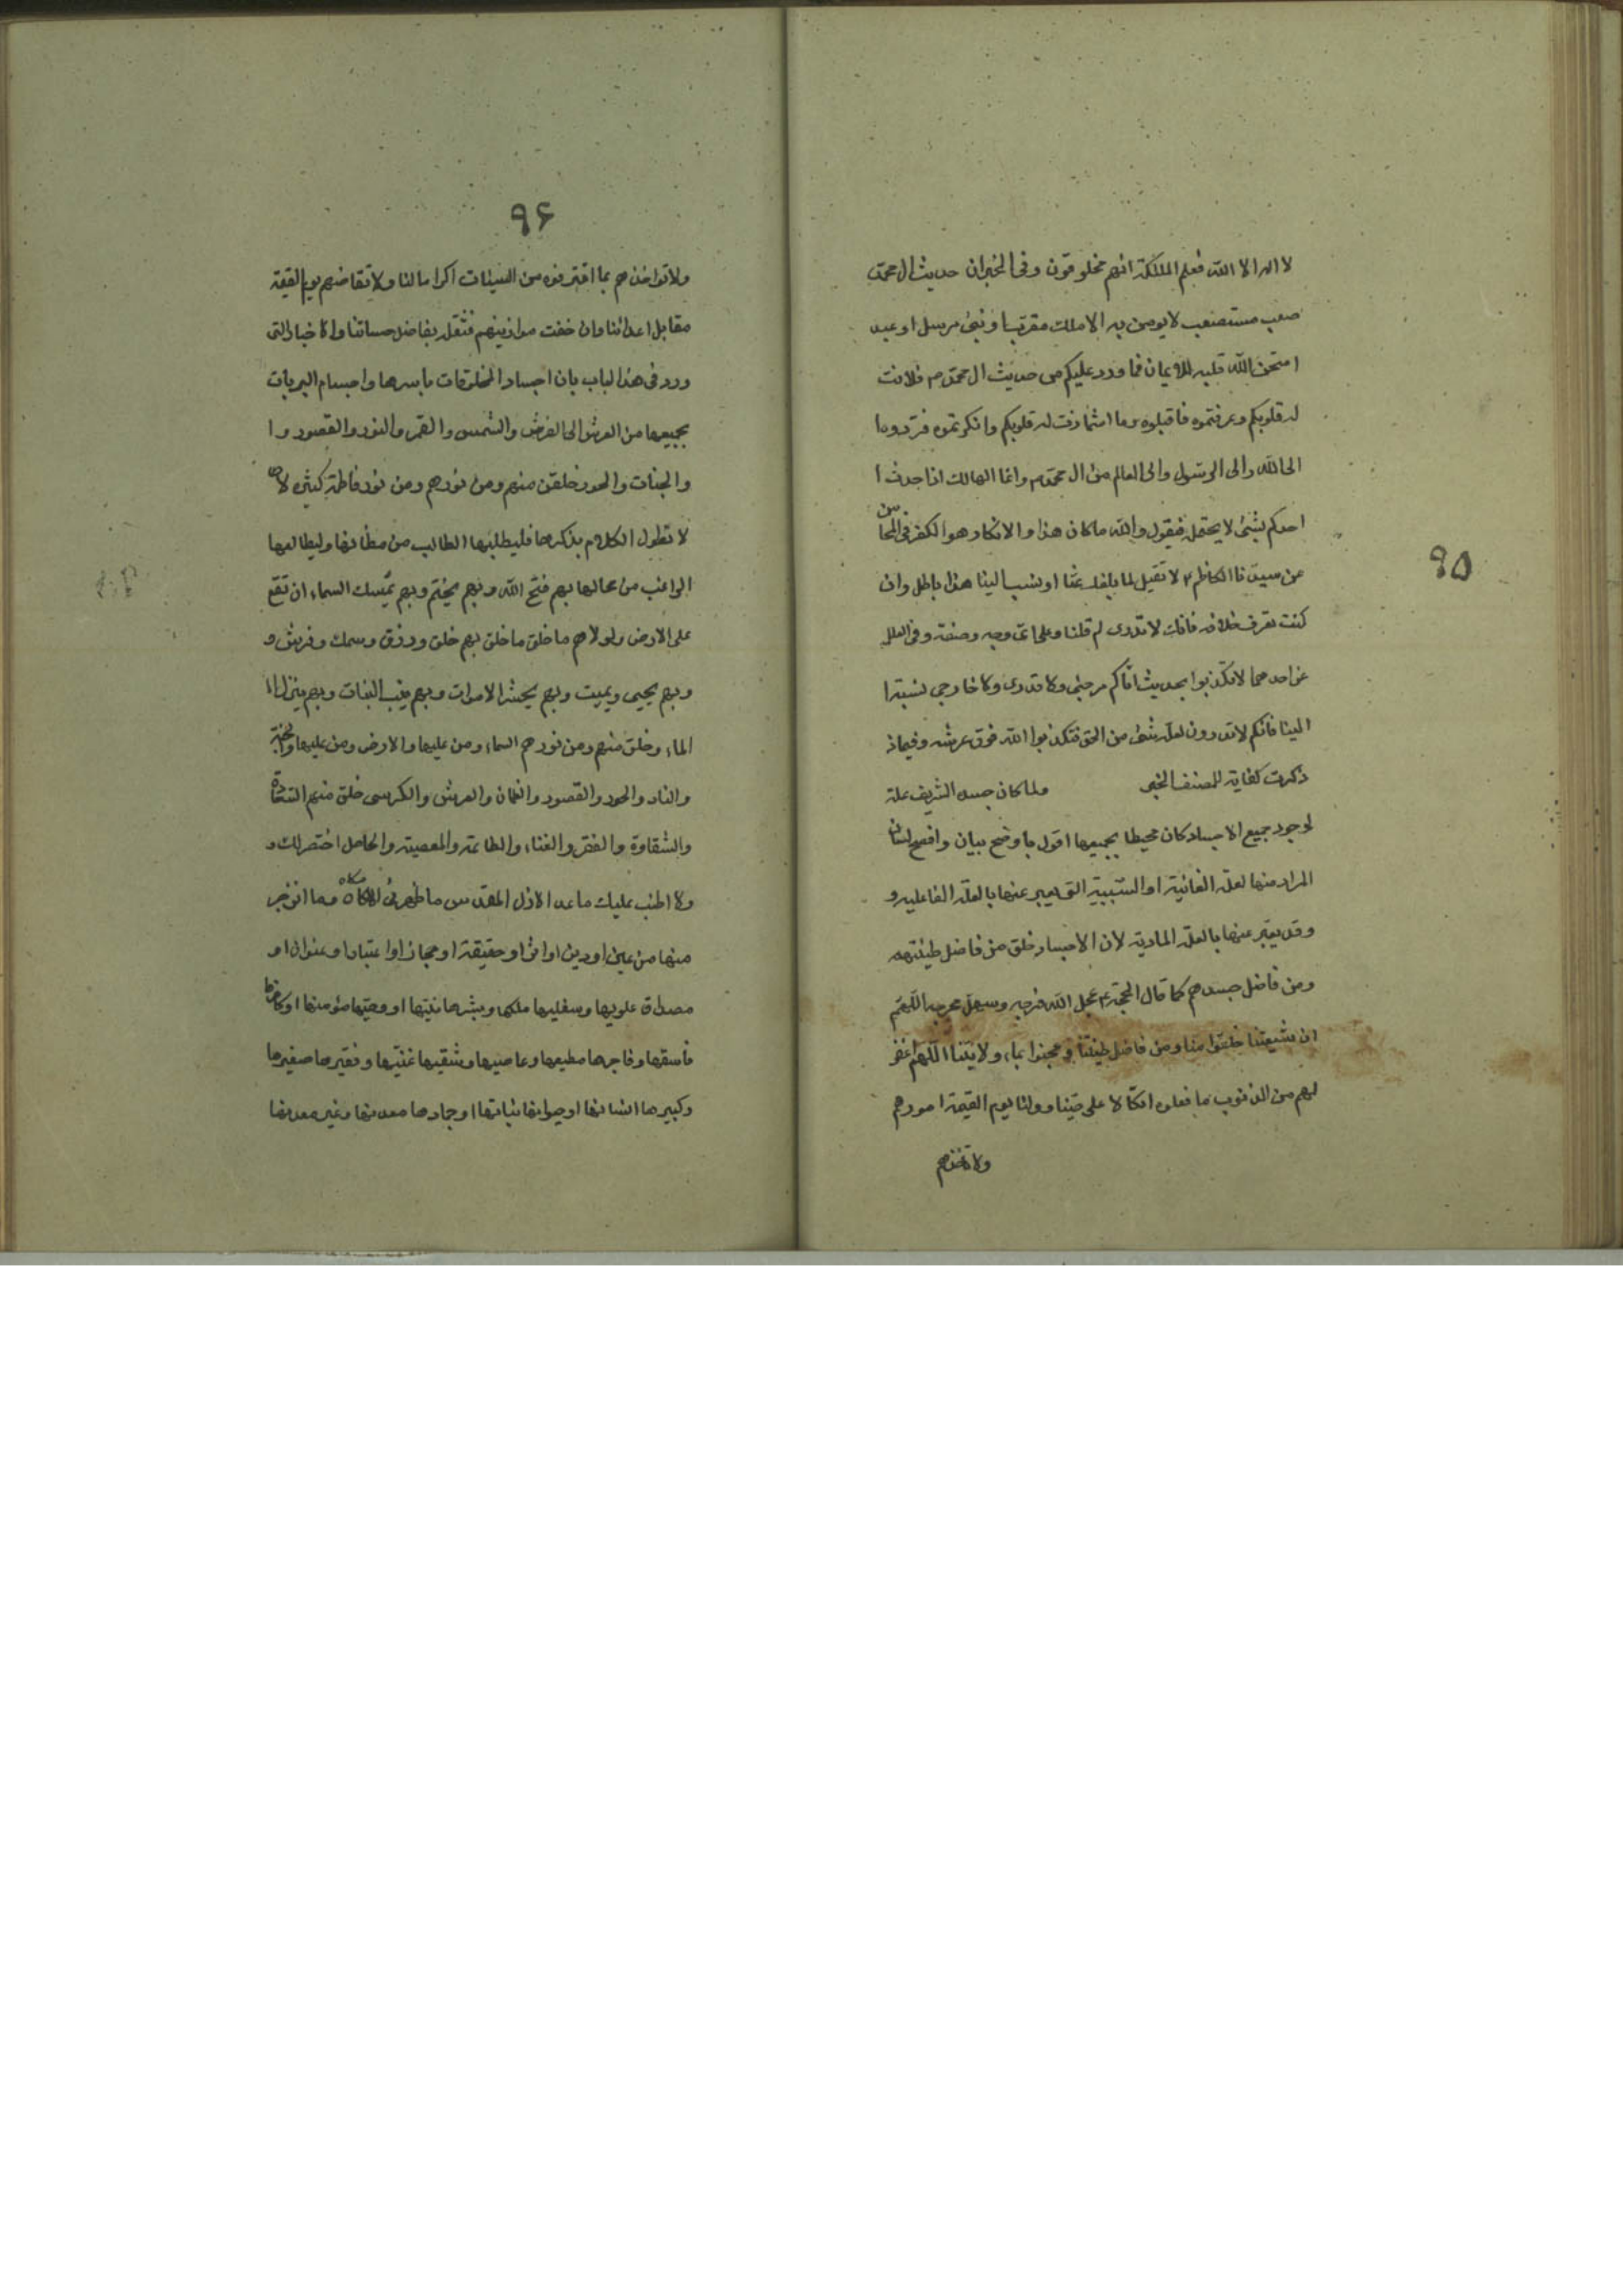 ٩٥
لا اله الا الله فعلم الملئكة انهم مخلوقون وفى الخبر ان حديث ال محمد
صعب مستصعب لا يومن به الا ملك مقرب او نبى مرسل او عبد
امتحن الله قلبه للايمان فما ورد عليكم من حديث ال محمد م فلانت
له قلوبكم وعرفتموه فاقبلوه وما اشمازت له قلوبكم وانكرتموه فردوها
الى الله والى الرسول والى العالم من ال محمد م وانما الهالك اذا حدث ا
احدكم بشئ لا يحتمله فيقول والله ما كان هذا والانكار هو الكفر فى المحاسن
عن سيدنا الكاظم ع لا تقبل لما بلغك عنا او نسب الينا هذا باطل وان
كنت تعرف خلافه فانك لا تدرى لم قلنا وعلى اى وجه وصفة وفى العلل
عن احدهما لا تكذبوا بحديث اتاكم مرجئى ولا قدرى ولا خارجى نسبه ا
الينا فانكم لا تدرون لعله شئ من الحق فتكذبوا الله فوق عرشه وفيما ذ
ذكرت كفاية للمصنف الخبير ولما كان جسده الشريف علة
لوجود جميع الاجساد كان محيطا بجميعها اقول باوضح بيان وافصح لسان
المراد منها لعلة الغائية او السببية التى يعبر عنها بالعلة الفاعليه و
وقد يعبر عنها بالعلة المادية لان الاجساد خلق من فاضل طينتهم
ومن فاضل جسدهم كما قال الحجة ع عجل الله فرجه وسهل مخرجه اللهم
ان شيعتنا خلقوا منا ومن فاضل طينتنا وعجنوا بماء ولايتنا اللهم اغفر
لهم من الذنوب ما فعلوه اتكالا على حبنا وولنا يوم القيمة امورهم
ولا تؤاخذهم
٩۶
ولا تواخذهم بما اقترفوه من السيئات اكراما لنا ولا تقاضهم يوم القيمة
مقابل اعدائنا وان خفت موازينهم فثقله بفاضل حسناتنا والاخبار التى
ورد فى هذا الباب بان اجساد المخلوقات باسرها واجسام البريات
بجميعها من العرش الى الفرش والشمس والقمر والنور والقصور و ا
والجنات والحور خلقن منهم ومن نورهم ومن نور فاطمة كثيرة لا
لا نطول الكلام بذكرها فليطلبها الطالب من مظانها وليطالعها
الراغب من محالها بهم فتح الله وبهم يختم وبهم يمسك السماء ان تقع
على الارض ولولاهم ما خلق ما خلق بهم خلق ورزق وسمك وفرش و
وبهم يحيى ويميت وبهم يحشر الاموات وبهم ينبت النبات وبهم ينزل ا
الماء وخلق منهم ومن نورهم السماء ومن عليها والارض ومن عليها والجنة
والنار والحور والقصور والغلمان والعرش والكرسى خلق منهم السعادة
والشقاوة والفقر والغناء والطاعة والمعصية والحاصل اختصر لك و
ولا اطنب عليك ما عدا الازل المقدس ما ظهر فى وما انوجر
منها من عين او دين او اثر او حقيقة او مجاز او اعتبار او عنوان او
مصداق علويها وسفليها ملكها وبشرها مؤمنها او كافرها
فاسقها وفاجرها مطيعها وعاصيها وشقيها غنيها وفقيرها صغيرها
وكبيرها انسانها او حيوانها نباتها او جمادها معدنها وغير معدنها